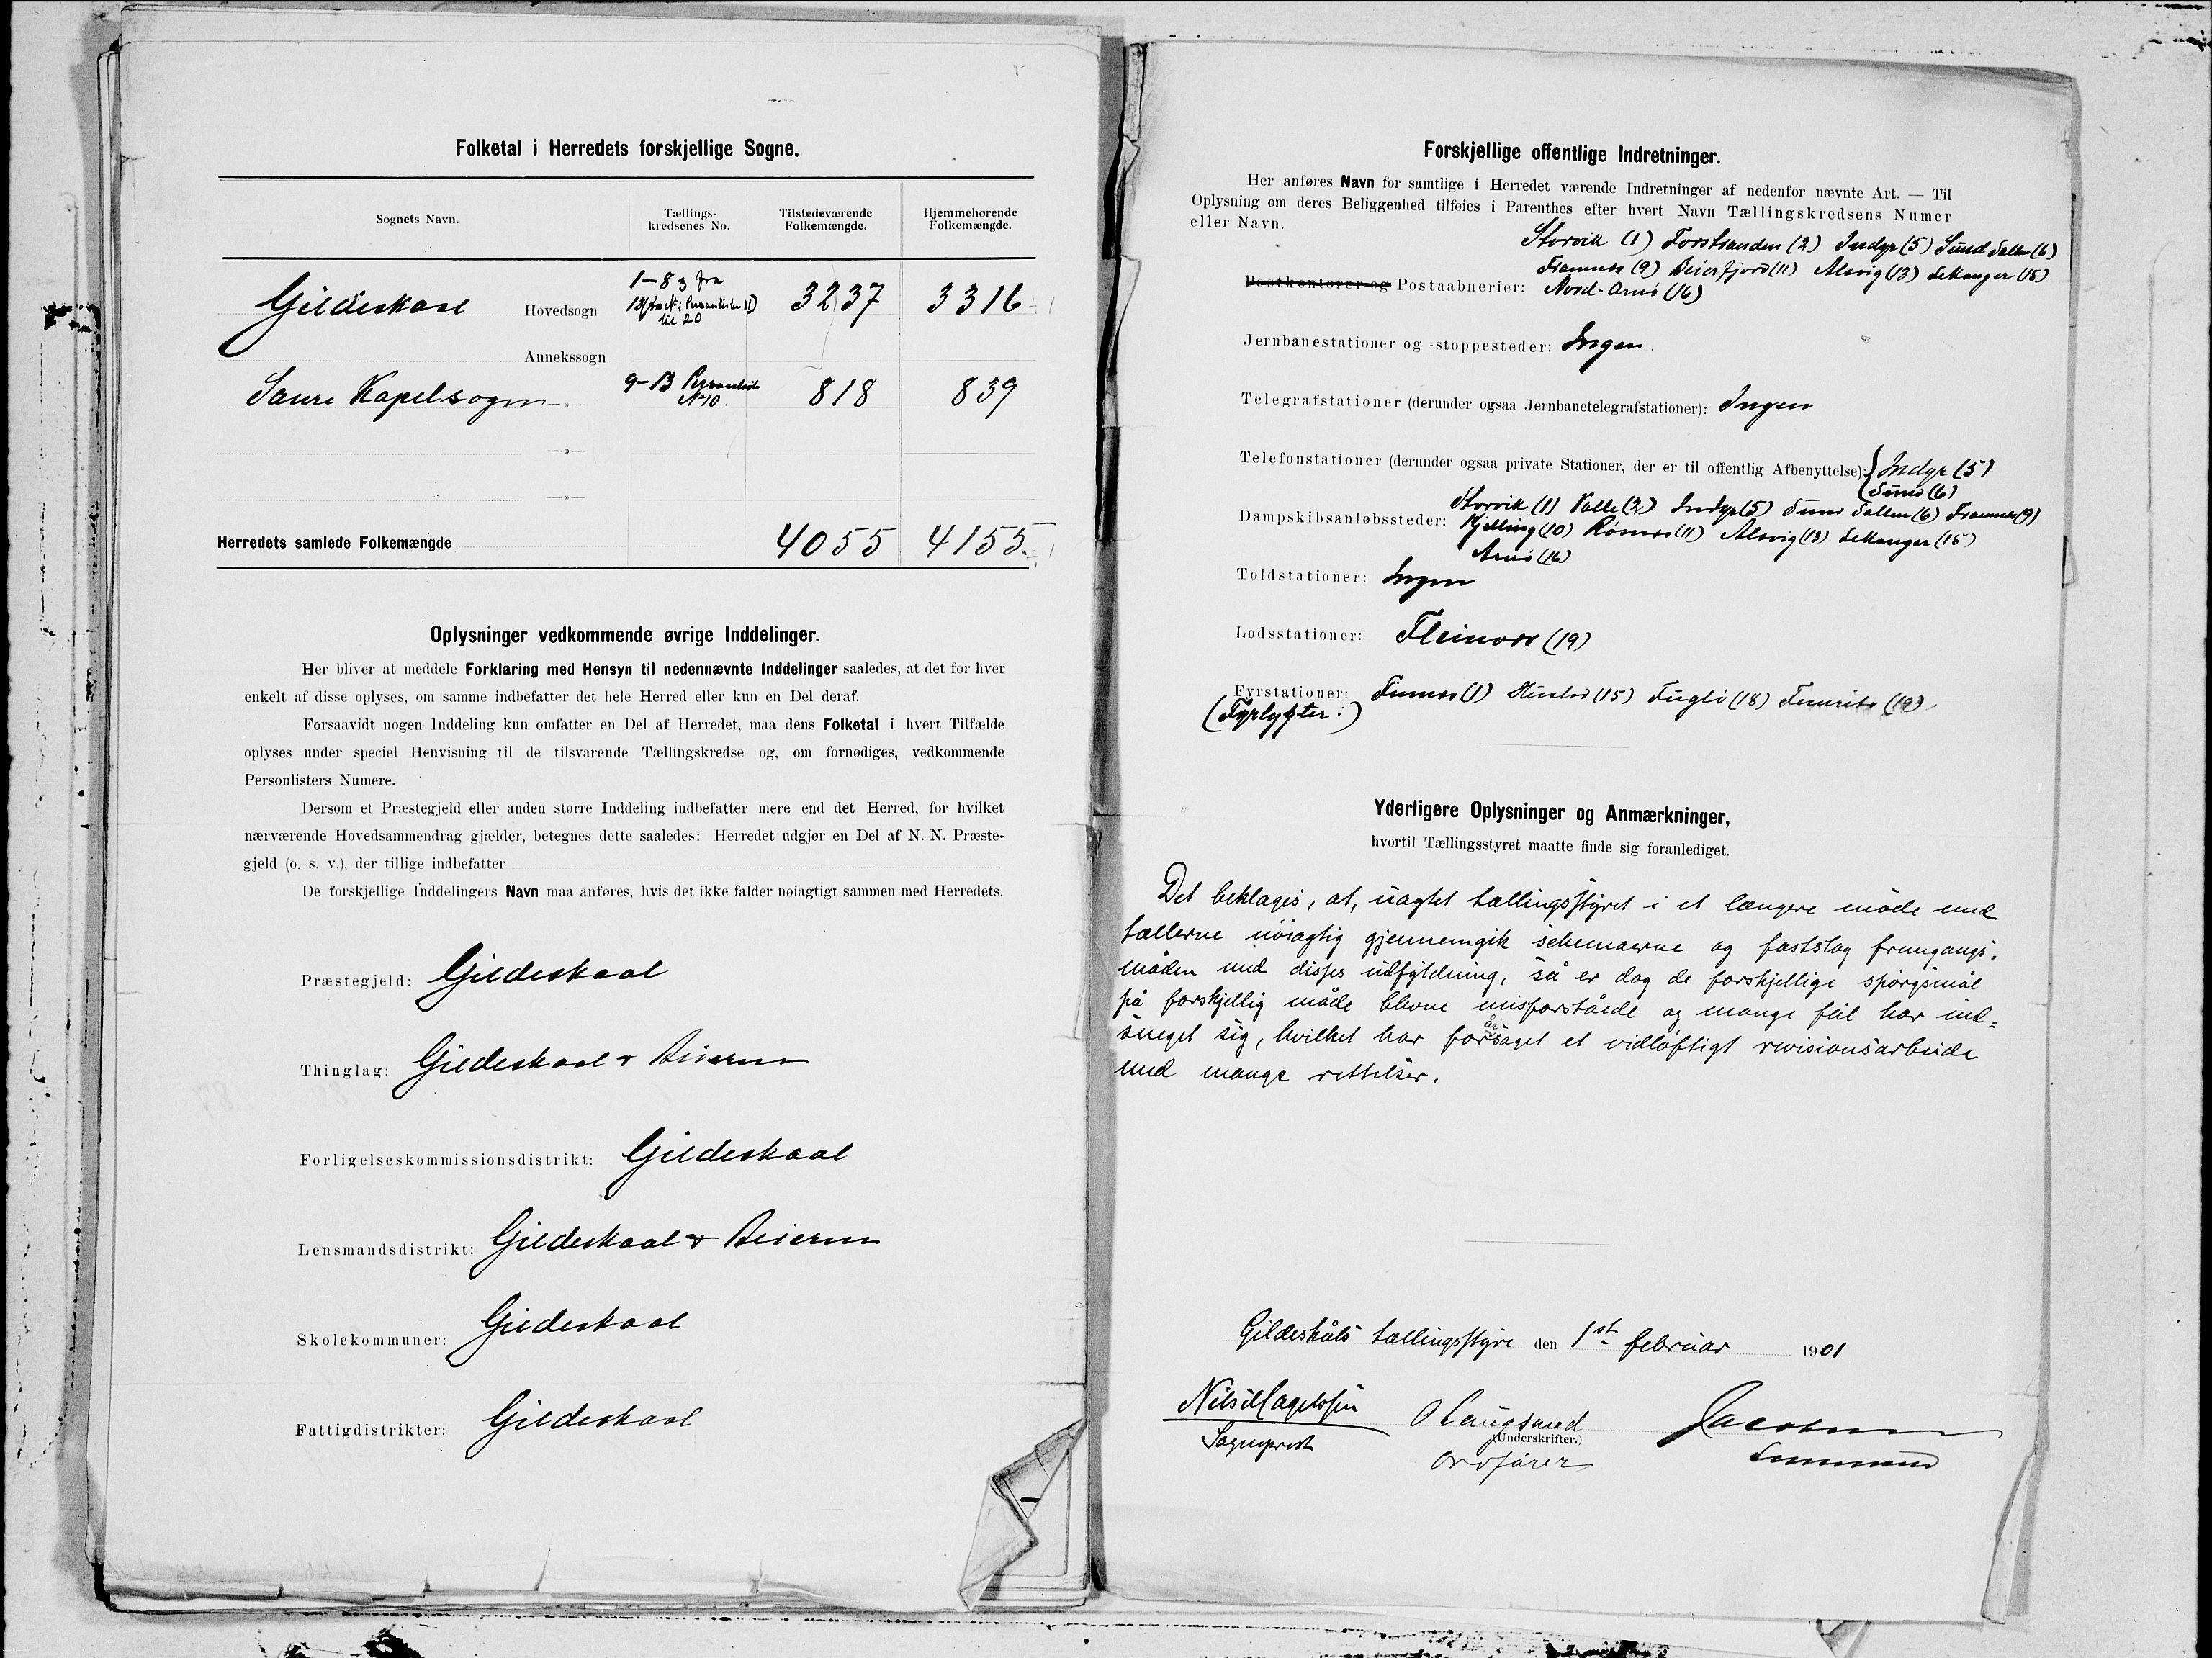 Folketal i Herredets forskjellige Sogne.
Sognets Navn.
Tællings-
kredsenes No.
Tilstedeværende
Folkemængde.
Hjemmehørende
Folkemængde.
Gildeskaal Hovedsogn 1-8 og fra
13 til 20 3237 3316
Annekssogn
Saura Kapelsogn —»— 9-13
No 10. 818 839
—»—
—»—
Herredets samlede Folkemængde 4055 4155
Oplysninger vedkommende øvrige Inddelinger.
Her bliver at meddele Forklaring med Hensyn til nedennævnte Inddelinger saaledes, at det for hver
enkelt af disse oplyses, om samme indbefatter det hele Herred eller kun en Del deraf.
Forsaavidt nogen Inddeling kun omfatter en Del af Herredet, maa dens Folketal i hvert Tilfælde
oplyses under speciel Henvisning til de tilsvarende Tællingskredse og, om fornødiges, vedkommende
Personlisters Numere.
Dersom et Præstegjeld eller anden større Inddeling indbefatter mere end det Herred, for hvilket
nærværende Hovedsammendrag gjælder, betegnes dette saaledes: Herredet udgjør en Del af N. N. Præste-
gjeld (o. s. v.), der tillige indbefatter
De forskjellige Inddelingers Navn maa anføres, hvis det ikke falder nøiagtigt sammen med Herredets.
Præstegjeld: Gildeskaal
Thinglag: Gildeskaal & Beieren
Forligelseskommissionsdistrikt: Gildeskaal
Lensmandsdistrikt: Gildeskaal & Beieren
Skolekommuner: Gildeskaal
Fattigdistrikter: Gildeskaal
Forskjellige offentlige Indretninger.
Her anføres Navn for samtlige i Herredet værende Indretninger af nedenfor nævnte Art. — Til
Oplysning om deres Beliggenhed tilføies i Parenthes efter hvert Navn Tællingskredsens Numer
eller Navn.
Storvik (1) Forstranden (2) Indyr (5) Sund Salten (6)
Framnes (9) Beierfjord (11) Alsvig (13) Selsanger (15)
Postkontorer og Postaabnerier: Nord-Arnö (16)
Jernbanestationer og -stoppesteder: Ingen
Telegrafstationer (derunder ogsaa Jernbanetelegrafstationer): Ingen
Telefonstationer (derunder ogsaa private Stationer, der er til offentlig Afbenyttelse): Indyr (5)
Sund (6)
Storvik (1) Valle (2) Indyr (5) Sund Salten (6) Framnes (9)
Dampskibsanløbssteder: Kjelling (10) (11) Alsvig (13) Selsanger (15)
Arnö (16)
Toldstationer: Ingen
Lodsstationer: Fleinvær (19)
Fyrstationer: (1) (15) Fuglö (18) (19)
(Fyrlygter:)
Yderligere Oplysninger og Anmærkninger,
hvortil Tællingsstyret maatte finde sig foranlediget.
Det beklages, at, uagtet tællingsstyret i et længere möde med
tællerne nöiagtig gjennemgik schemaerne og fastslog fremgangs-
måden med disses udfyldning, så er dog de forskjellige spörgsmål
på forskjellig måde blevne misforståede og mange feil har ind-
sneget sig, hvilket har forårsaget et vidlöftigt revisionsarbeide
med mange rettelser.
Gildeskåls tællingsstyre den 1st februar 1901
Sogneprest
O Langsæd
(Underskrifter.)
Ordförer
Jacobsen
Lensmand